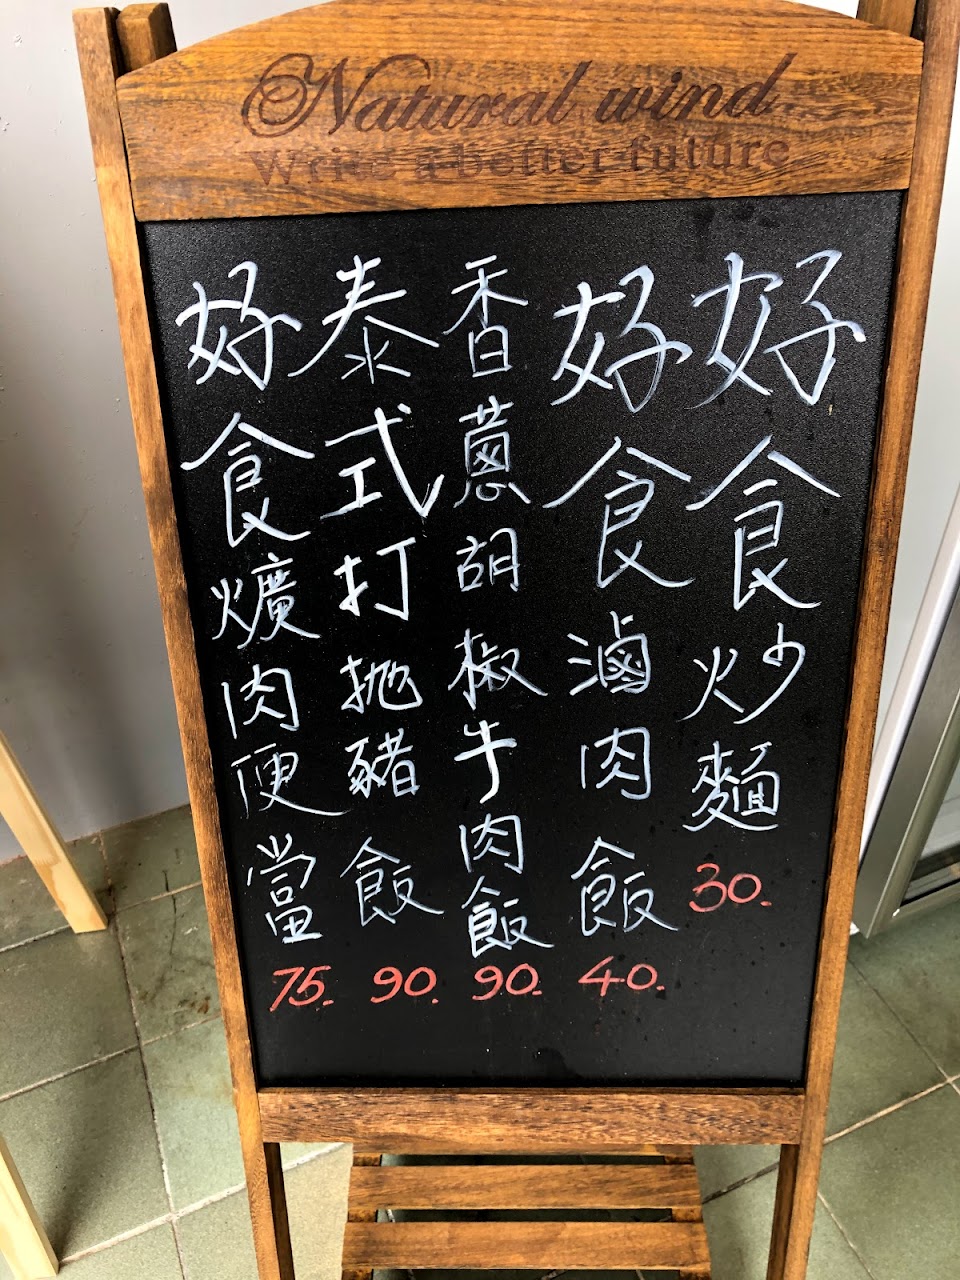 Natural wind
Write a better future
好食炒麵30.
好食滷肉飯40.
香蔥胡椒牛肉飯90.
泰式打拋豬飯90.
好食爌肉便當75.